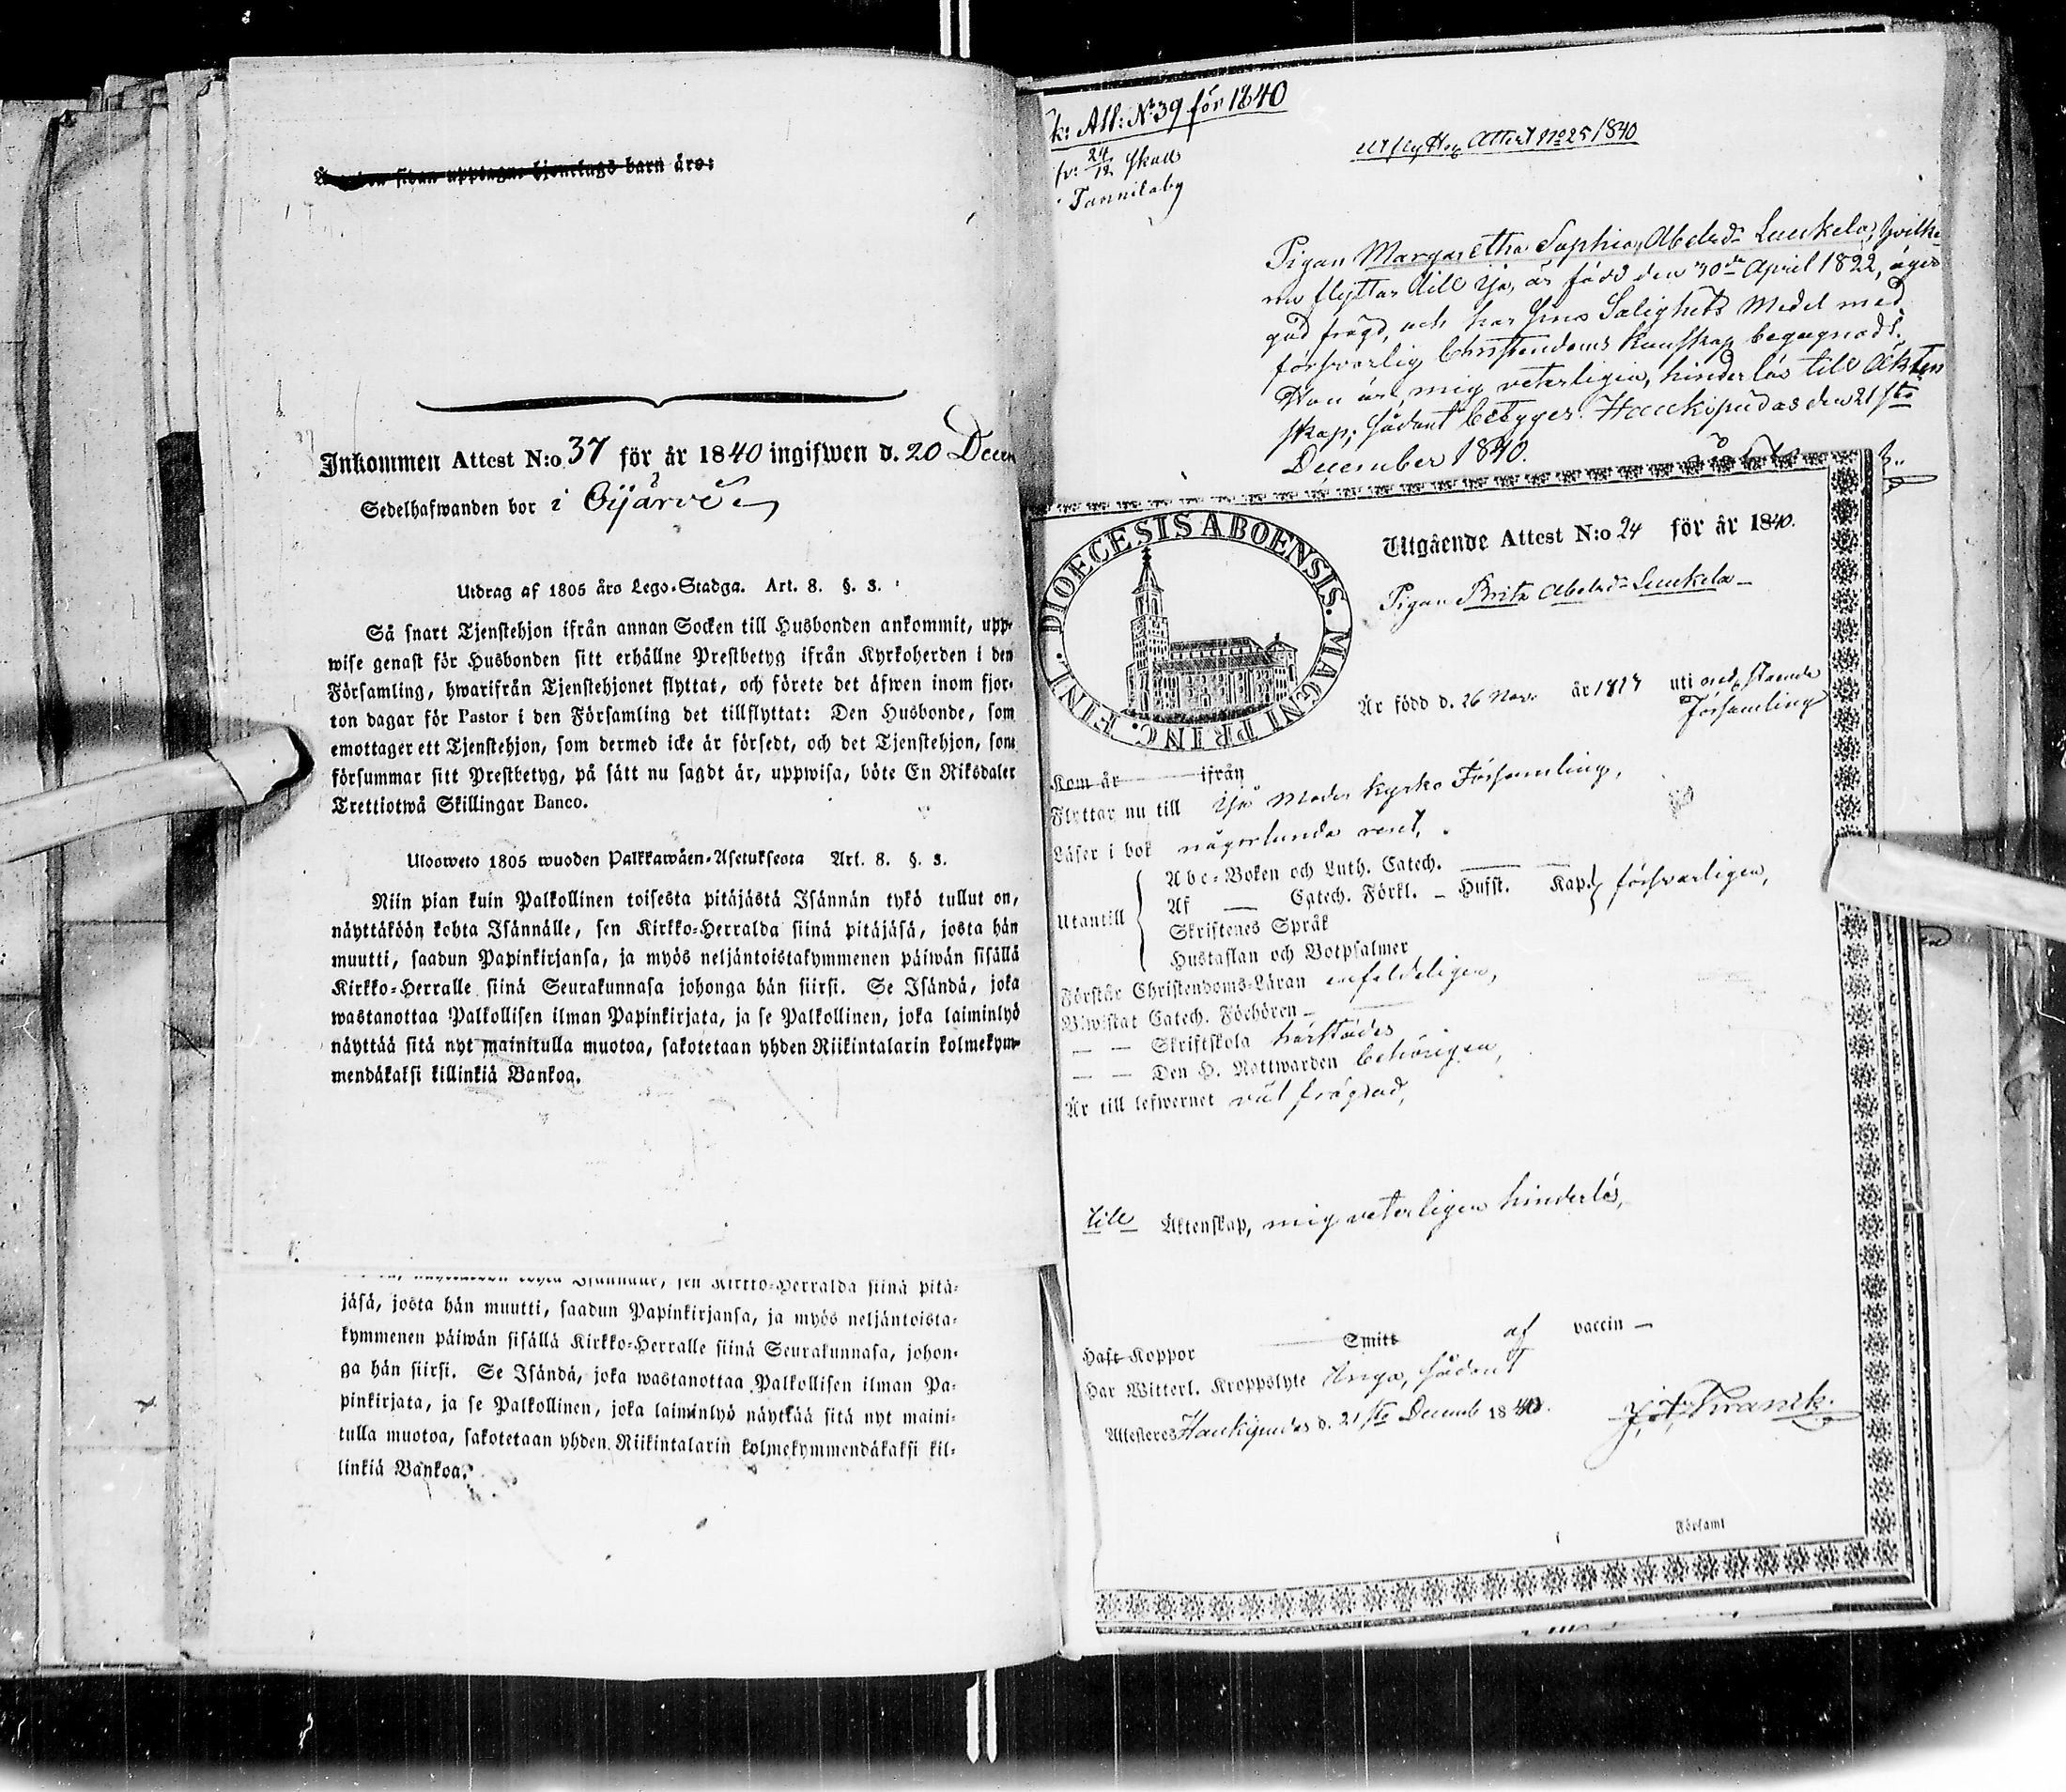 barn äro:
Inkommen Attest N:o 37 för år 1840 ingifwen d. 20 Decem
Sedelhafwanden bor i Oijärvi
Utdrag af 1805 års Lego-Stadga. Art. 8. §. 3.
Så snart Tjenstehjon ifrån annan Socken till Husbonden ankommit, upp-
wise genast för Husbonden sitt erhållne Prestbetyg ifrån Kyrkoherden i den
Församling, hwarifrån Tjenstehjonet flyttat, och förete det äfwen inom fjor-
ton dagar för Pastor i den Församling det tillflyttat: Den Husbonde, som
emottager ett Tjenstehjon, som dermed icke är försedt, och det Tjenstehjon, som
försummar sitt Prestbetyg, på sätt nu sagdt är, uppwisa, böte En Riksdaler
Trettiotwå Skillingar Banco.
Ulosweto 1805 wuoden Palkkawäen-Asetuksesta Art. 8. §. 3.
Niin pian kuin Palkollinen toisesta pitäjästä Isännän tykö tullut on,
näyttäköön kohta Isännälle, sen Kirkko-Herralda siinä pitäjäsä, josta hän
muutti, saadun Papinkirjansa, ja myös neljäntoistakymmenen päiwän sisällä
Kirkko-Herralle siinä Seurakunnasa johonga hän siirsi. Se Isändä, joka
wastanottaa Palkollisen ilman Papinkirjata, ja se Palkollinen, joka laiminlyö
näyttää sitä nyt mainitulla muotoa, sakotetaan yhden Riikintalarin kolmekym-
mendäkaksi killinkiä Bankoa.
sen Kirkko-Herralda siinä pitä-
jäsä, josta hän muutti, saadun Papinkirjansa, ja myös neljäntoista-
kymmenen päiwän sisällä Kirkko-Herralle siinä Seurakunnasa, johon-
ga hän siirsi. Se Isändä, joka wastanottaa Palkollisen ilman Pa-
pinkirjata, ja se Palkollinen, joka laiminlyö näyttää sitä nyt maini-
tulla muotoa, sakotetaan yhden Riikintalarin kolmekymmendäkaksi kil-
linkiä Bankoa.
k: Att: No 39 för 1840
24/12
Tannilaby
Utflyttng Attest No 25 1840
Pigan Margaretha Sophia Abelsdr Luukela, hvilken
nu flyttar till Ijo, är född den 30de April 1822, äger
god frägd, och har sina Salighets Medel med
försvarlig Christendoms kunskap begagnadt.
Hon är, mig veterligen, hinderlös till Äkten
skap; sådant betygar. Haukipudas den 21sta
December 1840.
DIOECESIS ABOENSIS. MAGNI PRINC. FINL.
Utgående Attest N:o 24 för år 1840.
Pigan Brita Abelsdr Luukela
Är född d. 26 Nov. år 1817 uti nedanstående
Församling
Kom år ifrån
Flyttar nu till Ijo Moder kyrko Församling,
Läser i bok någorlunda rent,
Abc-Boken och Luth. Catech.
Af Catech. Förkl. Hufst. Kap. försvarligen,
Utantill
Skriftenes Språk
Hustaflan och Botpsalmer
Förstår Christendoms-Läran enfaldeligen,
Biwistat Catech. Förhören
Skriftskola härstädes
Den H. Nattwarden behörigen,
Är till lefwernet väl frägdad,
till Äktenskap, mig veterligen hinderlös,
Haft Koppor Smitt af vaccin
Har Witterl. Kroppslyte Inga, sådant
Attesteras Haukipudas d. 21sta Decemb 1840.
Församl